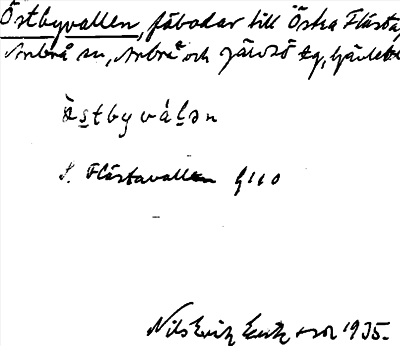 Östbyvallen, fäbodar till Östra Flästa,
Arbrå sn, Arbrå och Järvsö tg,
östbyválən
S. Flästavallen G110
Nils Erik 1935.